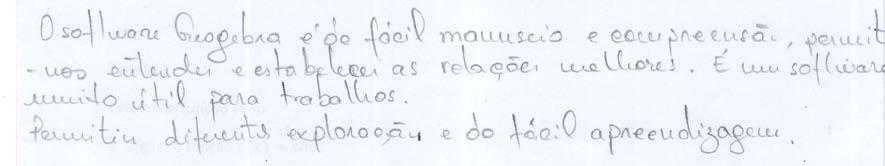 O software Geogebra é do fácil manuscio e compreensão, permit
-nos entender e estabelecer as relações melhores. É um software
muito útil para trabalhos.
Permitiu diferents exploração e do fácil apreendizagem.